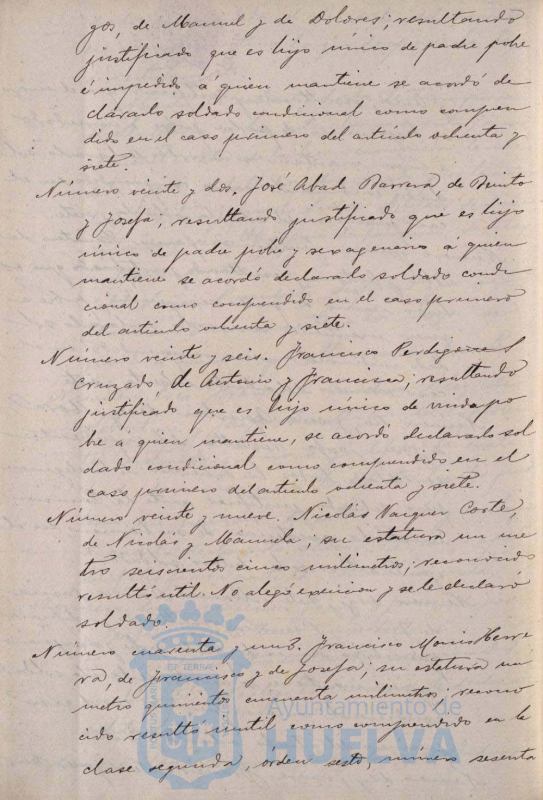 gos, de Manuel y de Dolores; resultando
justificado que es hijo único de padre pobre
é impedido á quien mantiene se acordó de
clararlo soldado condicional como compren
dido en el caso primero del artículo ochenta y
siete.
Número veinte y dos. José Abad Barrera, de Benito
y Josefa; resultando justificado que es hijo
único de padre pobre y sexagenario á quien
mantiene se acordó declararlo soldado condi
cional como comprendido en el caso primero
del artículo ochenta y siete.
Número veinte y seis. Francisco Perdigones
Cruzado de Antonio y Francisca; resultando
justificado que es hijo único de viuda po
bre á quien mantiene, se acordó declararlo sol
dado condicional como comprendido en el
caso primero del artículo ochenta y siete.
Número veinte y nueve. Nicolás Vazquez Corte,
de Nicolás y Manuela; su estatura un me
tro seiscientos cinco milimetros; reconocido
resultó util. No alegó exencion y se le declaró
soldado.
Número cuarenta y uno. Francisco Herre
ra, de Francisco y de Josefa; su estatura un
metro quinientos cincuenta milimetros; recono
cido resultó inutil como comprendido en la
clase segunda, órden sesto, número sesenta
Ayuntamiento de
HUELVA